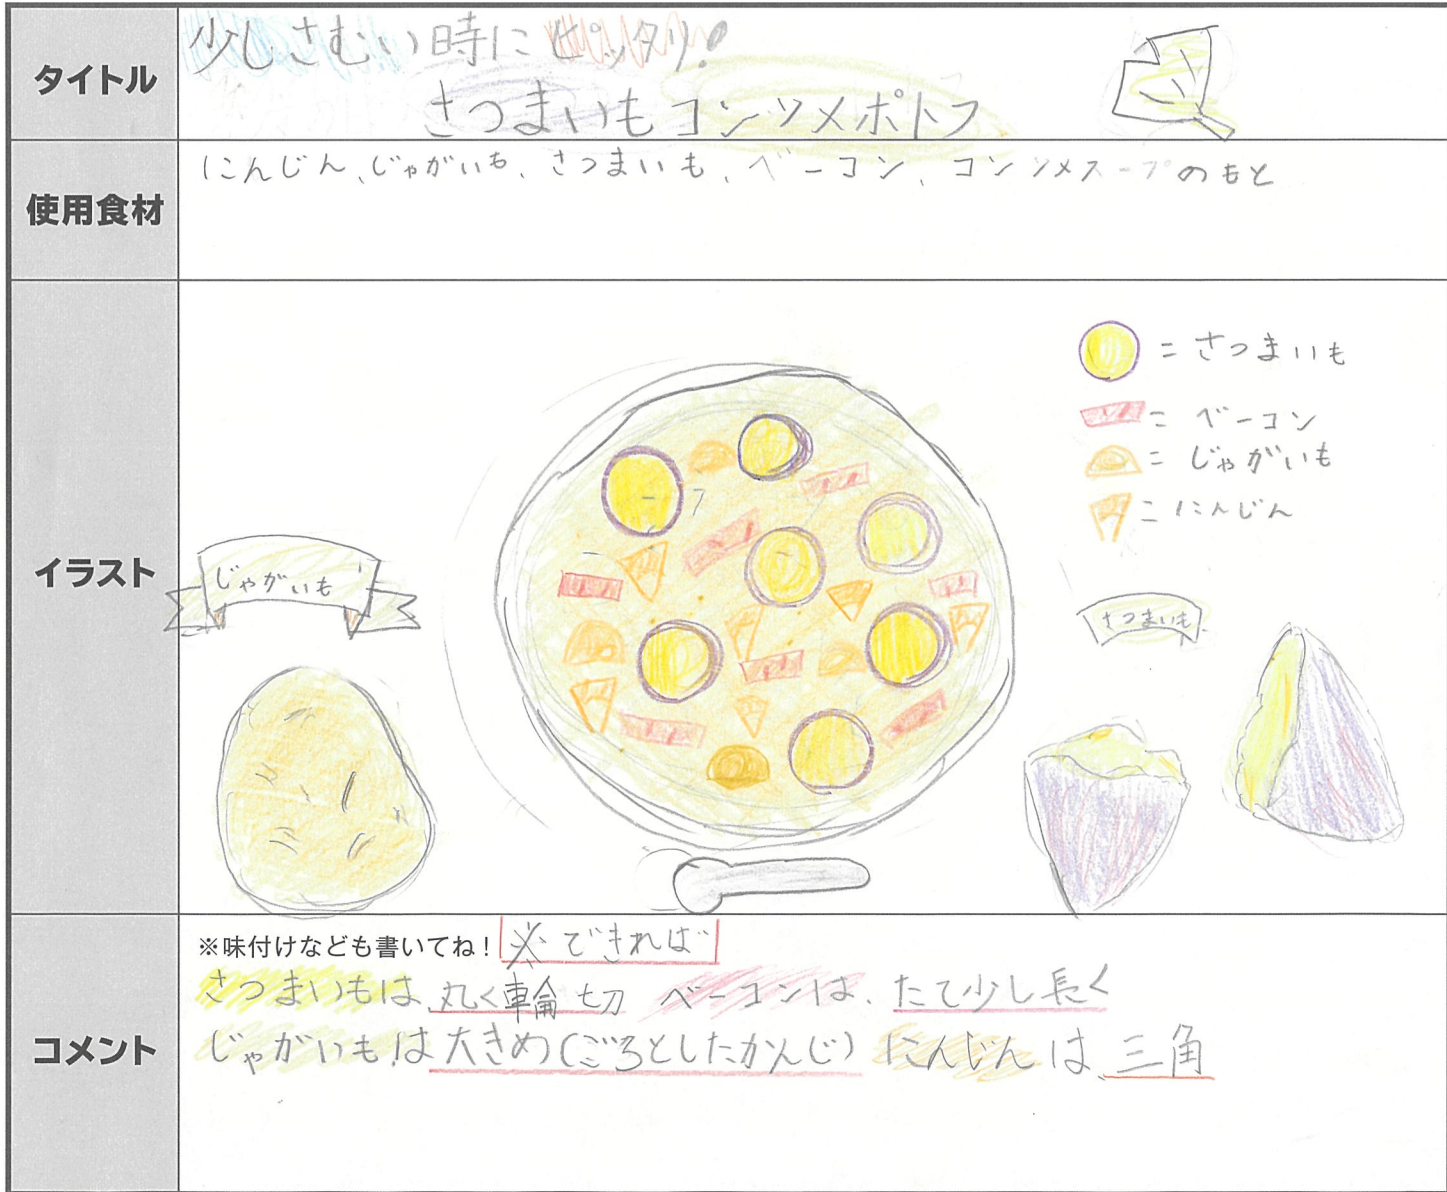 タイトル
少しさむい時にピッタリ!
さつまいもコンソメポトフ
使用食材
にんじん、じゃがいも、さつまいも、ベーコン、コンソメスープのもと
イラスト
=さつまいも
=ベーコン
=じゃがいも
=にんじん
じゃがいも
さつまいも
コメント
※味付けなども書いてね! ※できれば
さつまいもは、丸く輪切 ベーコンは、たて少し長く
じゃがいもは大きめ(ごろとしたかんじ) にんじんは、三角